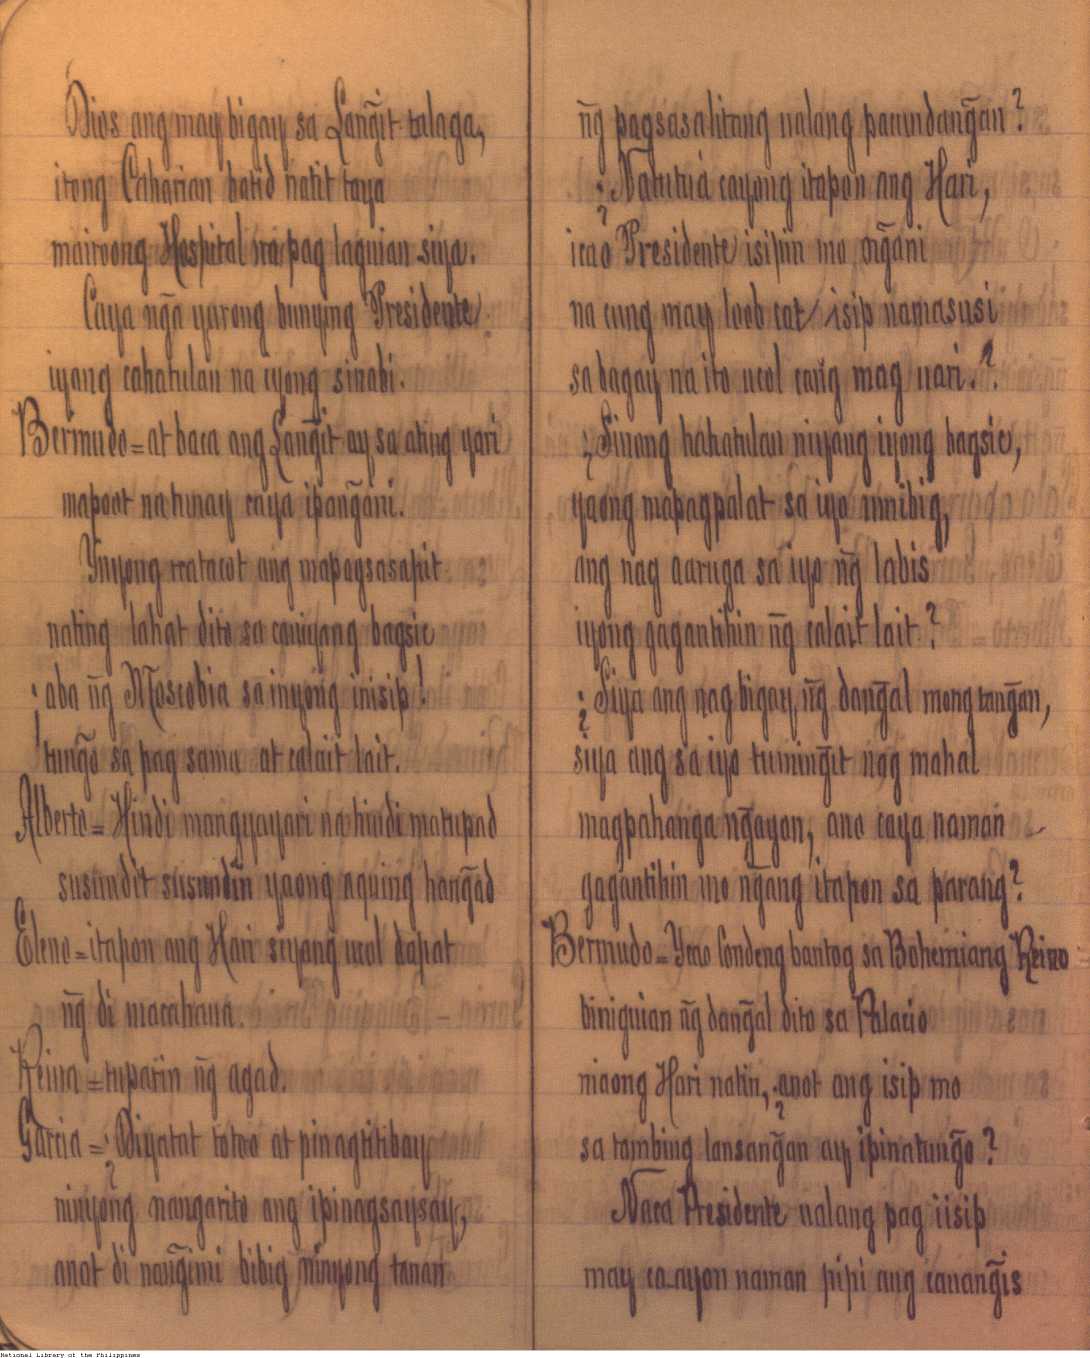 Dios ang may bigay sa Lang̃it talaga,
itong Caharian batid natit taya
mairoong Hospital na pag laguian siya.
Caya ng̃a yarong bunying Presidente
iyang cahatulan na iyong sinabi.
Bermudo = at baca ang Lang̃it ay sa ating yari
mapoot na tunay caya ipang̃ani.
Ynyong matacot ang mapagsasapit
nating lahat dito sa caniyang bagsic
¡aba ñg Moscobia sa inyong inisip!
tung̃o sa pag sama at calait lait.
Alberto = Hindi mangyayari na hindi matupad
susundit susundin yaong aquing hang̃ad
Eleno = itapon ang Hari siyang ucol dapat
ñg di macahaua.
Reina = tuparin ñg agad.
Garcia = ¿Diyatat totoo at pinagtitibay
ninyong nangarito ang ipinagsaysay,
anat di nang̃imi bibig ninyong tanan
ñg pagsasalitang ualang pacundang̃an?
¿Natutuá cayong itapon ang Hari,
icao Presidente isipin mo ñgani
na cung may loob cat isip namasusi
sa bagay na ito ucol cang mag uari.?
¿Sinong hahatulan niyang iyong bagsic,
yaong mapagpalat sa iyo inibig,
ang nag aaruga sa iyo ñg labis
iyong gagantihin ñg calait lait?
¿Siya ang nag bigay ñg dang̃al mong tang̃an,
siya ang sa iyo tuming̃it nag mahal
magpahanga ng̃ayon, ano caya naman
gagantihin mo ng̃ang itapon sa parang?
Bermudo = Ycao Condeng bantog sa Bohemiang Reino
biniguian ñg dang̃al dito sa Palacio
niaong Hari natin, ¿anot ang isip mo
sa tambing lansang̃an ay ipinatung̃o?
Naca Presidente ualang pag iisip
may ca ayon naman pipi ang canang̃is
National Library of the Philippines